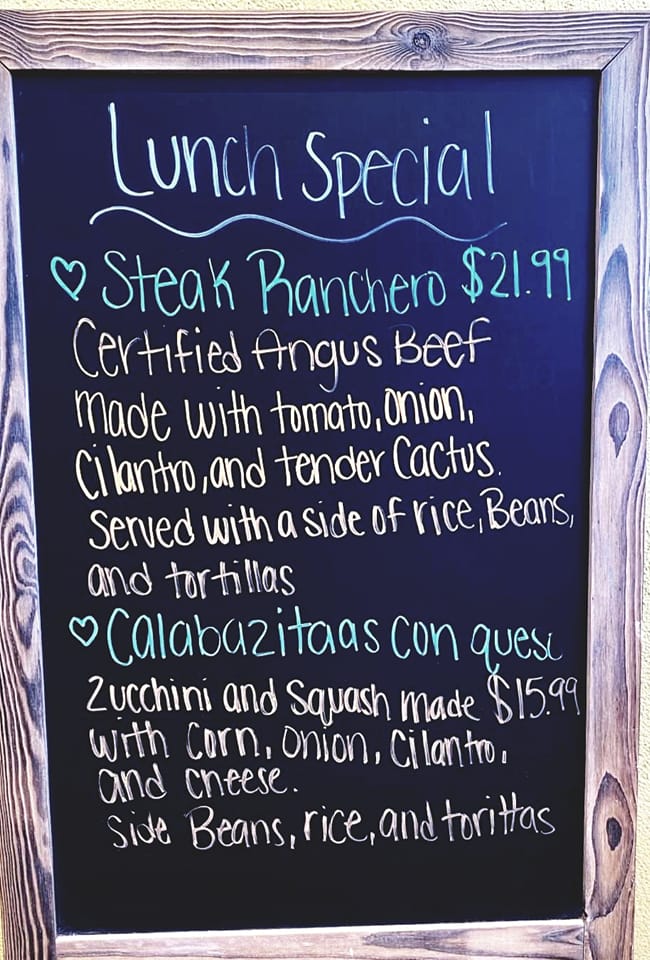 Lunch Special
Steak Ranchero $21.99
Certified Angus Beef
made with tomato, onion,
Cilantro, and tender Cactus.
Served with a side of rice, Beans,
and tortillas
Calabazitaas con queso
Zucchini and Squash made $15.99
with Corn, onion, Cilantro,
and cheese.
Side Beans, rice, and torittas